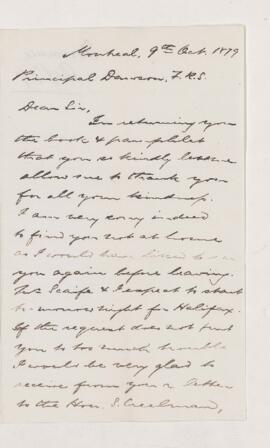 Montreal, 9th Oct. 1879
Principal Dawson, F.R.S.
Dear Sir,
In returning you
the book & pamphlet
that you so kindly
allow me to thank you
for all your kindness.
I am very sorry indeed
to find you not at home
as I would have liked to see
you again before leaving.
Scaife & I expect to start
to-morrow night for Halifax.
If the request does not put
you to too much trouble
I would be very glad to
receive from you a letter
to the Hon. S. Creelman,